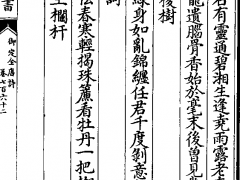 君有靈通碧湘生逢堯雨露老
龍遺腦骨香始於毫末後曾見
後樹
緣身如亂錦纏任君千度剝意
怯春寒輕揭珠簾看牡丹一把
上欄杆
書
御定全唐詩
卷七百六十二